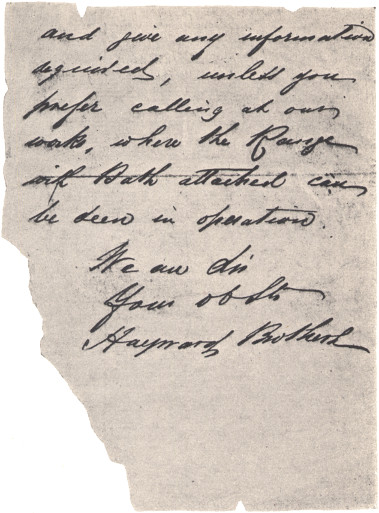 and give any information
required, unless you
prefer calling at our
works, where the Range
with Bath attached can
be seen in operation
We are Sir
Your obt Sts
Hayward Brothers